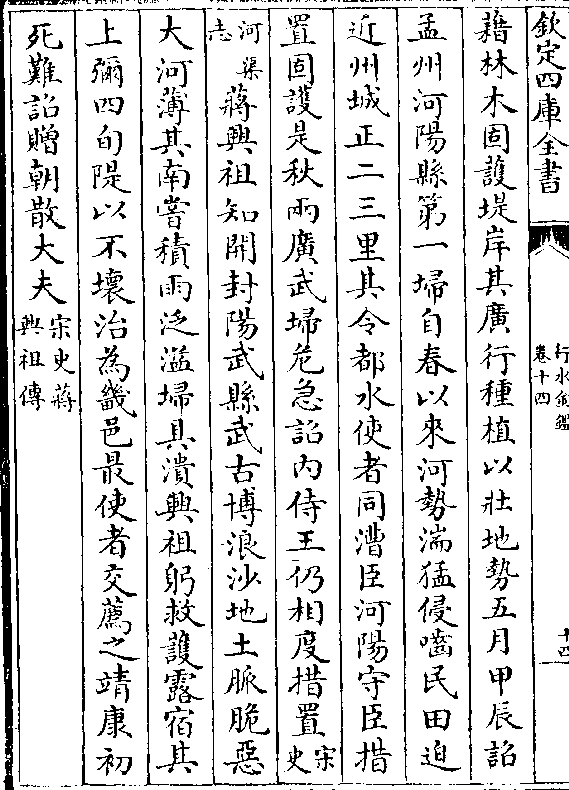 欽定四庫全書
行水金鑑
卷十四
十四
藉林木固護堤岸其廣行種植以壯地勢五月甲辰詔
孟州河陽縣第一埽自春以來河勢湍猛侵囓民田迫
近州城正二三里其令都水使者同漕臣河陽守臣措
置固護是秋雨廣武埽危急詔內侍王仍相度措置宋史
河渠志 蔣興祖知開封陽武縣武古博浪沙地土脈脆惡
大河薄其南嘗積雨泛溢埽具潰興祖躬救護露宿其
上彌四旬隄以不壞治為畿邑最使者交薦之靖康初
死難詔贈朝散大夫宋史蔣興祖傳